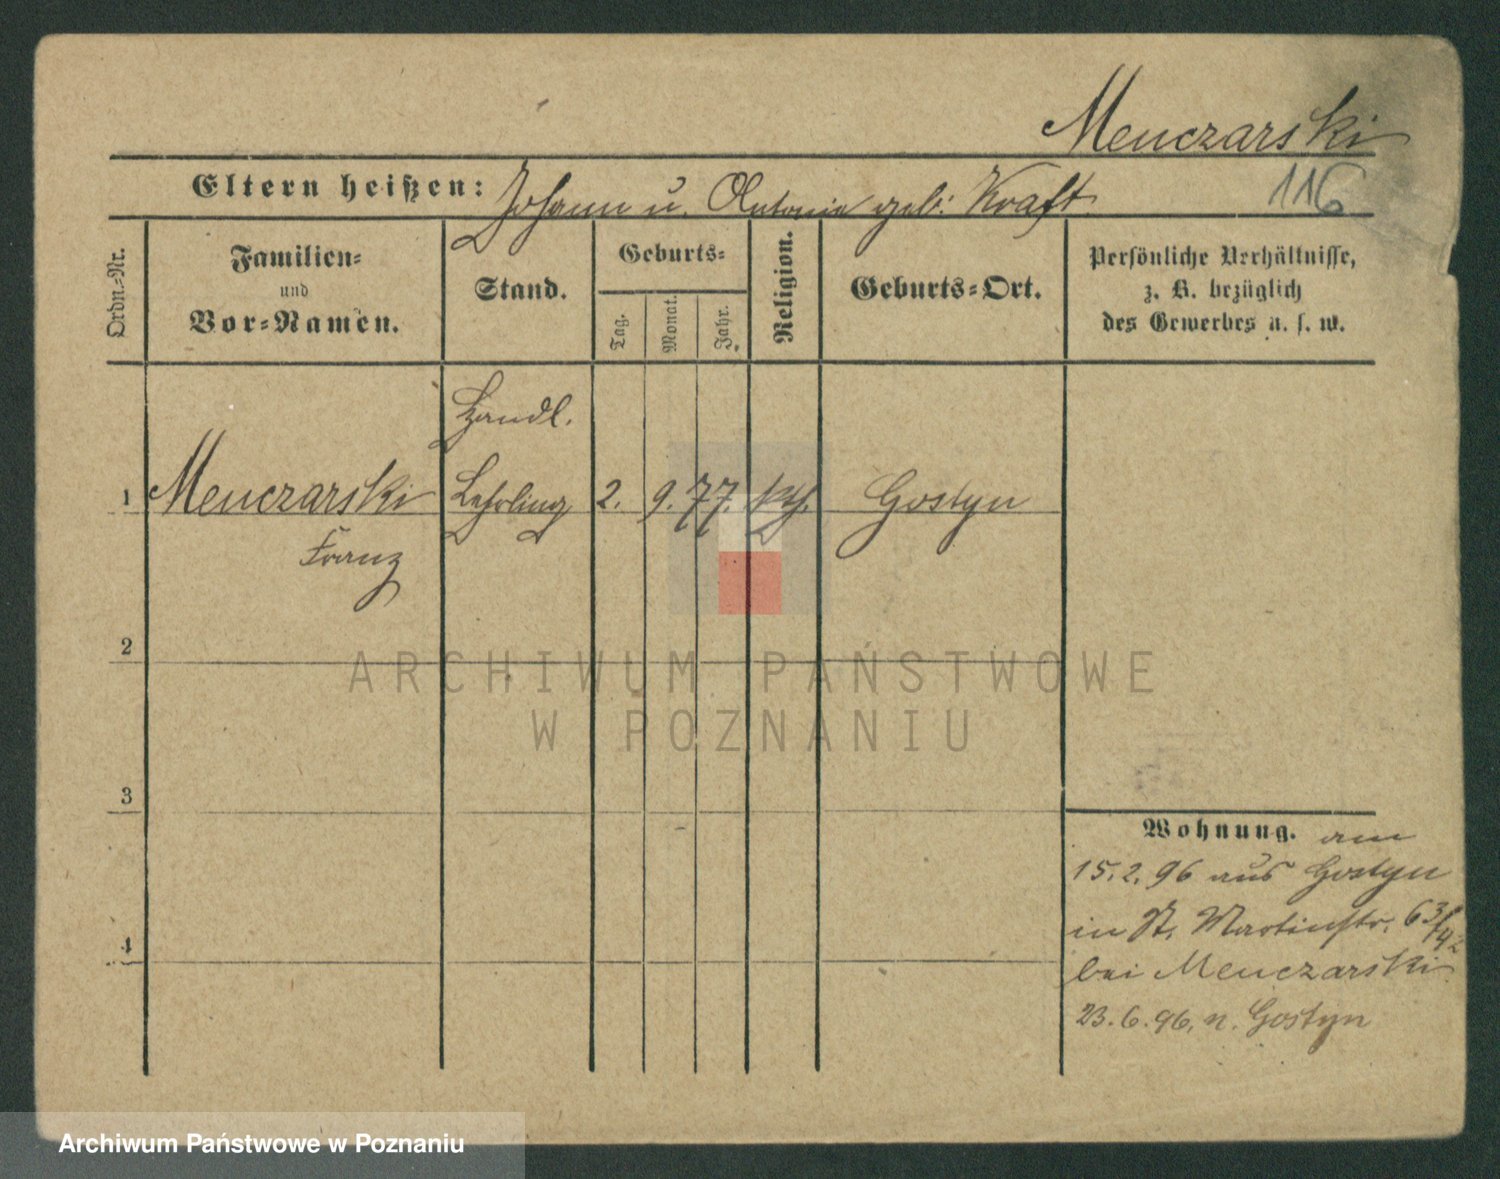 Menczarski
116
Eltern heißen: Johann u. Antonie geb: Kraft
Ordn.-Nr.
Familien-
und
Vor-Namen.
Stand.
Geburts-
Tag.
Monat.
Jahr.
Religion.
Geburts-Ort.
Persönliche Verhältnisse,
z. B. bezüglich
des Gewerbes u. s. w.
Handl.
1 Menczarski Lehrling 2. 9. 77. kth. Gostyn
Franz
2
3
4
Wohnung. am
15.2.96 aus Gostyn
in St. Martinstr. 63/42
bei Menczarski
23.6.96. n. Gostyn
ARCHIWUM PAŃSTWOWE
W POZNANIU
Archiwum Państwowe w Poznaniu